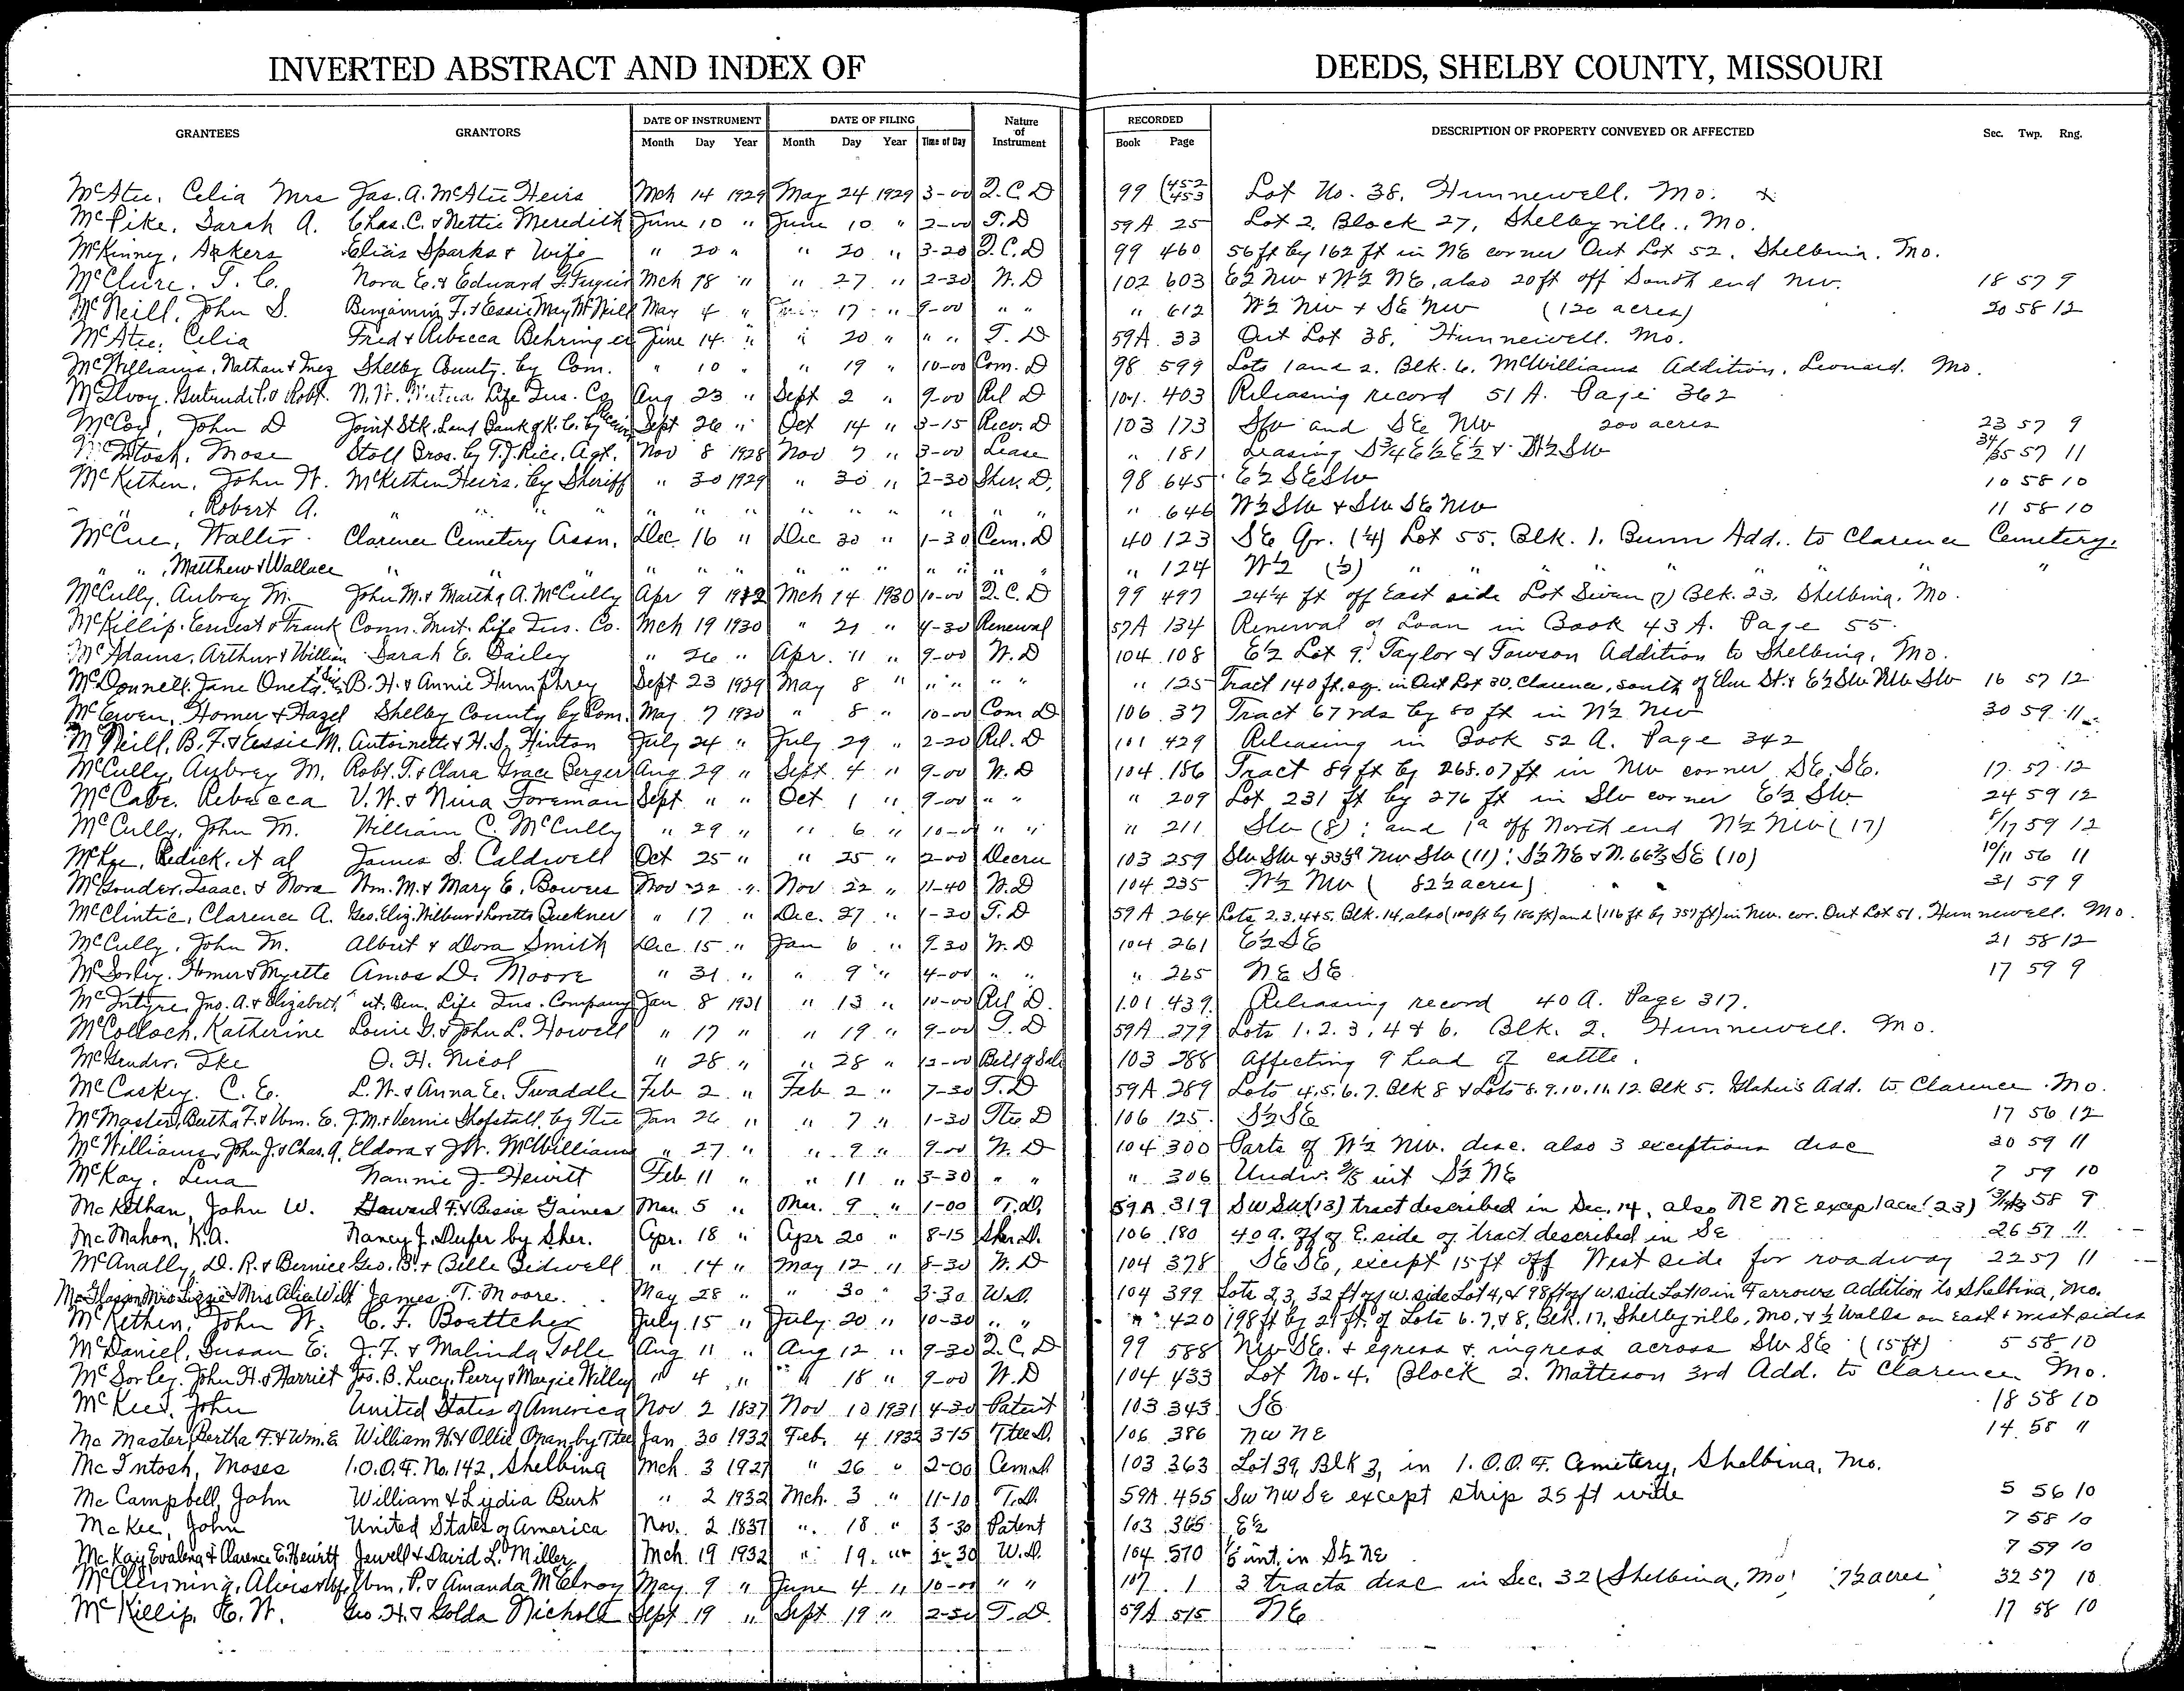 INVERTED ABSTRACT AND INDEX OF DEEDS, SHELBY COUNTY, MISSOURI
GRANTEES GRANTORS DATE OF INSTRUMENT DATE OF FILING Nature of Instrument RECORDED DESCRIPTION OF PROPERTY CONVEYED OR AFFECTED Sec. Twp. Rng.
Month Day Year Month Day Year Time of Day Book Page
McAtee, Celia Mrs Jas. A. McAtee Heirs Mch 14 1929 May 24 1929 3-00 Q.C.D 99 (452 453 Lot No. 38, Hunnewell, Mo.
McPike, Sarah A. Chas. C. & Nettie Meredith June 10 " June 10 " 2-00 T.D 59A 25 Lot 2, Block 27, Shelbyville, Mo.
McKinney, Ankers Elias Sparks & Wife " 20 " " 20 " 3-20 Q.C.D 99 460 56 ft by 162 ft in NE corner Out Lot 52, Shelbina, Mo.
McClure, T. C. Nora E. & Edward G. Mch 18 " " 27 " 2-30 W.D 102 603 E½ NW & W½ NE, also 20 ft off South end NW. 18 57 9
McNeill, John S. Benjamin F. & Essie May McNeill May 4 " 17 " 9-00 " " " 612 W½ NW & SE NW (120 acres) 20 58 12
McAtee, Celia Fred & Rebecca Behringer June 14 " " 20 " " " T.D 59A 33 Out Lot 38, Hunnewell, Mo.
McWilliams, Nathan & Inez Shelby County by Com. " 10 " " 19 " 10-00 Com. D 98 599 Lots 1 and 2, Blk. 6, McWilliams Addition, Leonard, Mo.
McIlvoy, Gertrude L. & Robt. N.W. Mutual Life Ins. Co Aug 23 " Sept 2 " 9-00 Rel D 101 403 Releasing record 51 A. Page 362
McCoy, John D Joint Stk. Land Bank of K.C. by Sept 26 " Oct 14 " 3-15 Recv. D 103 173 SW and SE NW 200 acres 23 57 9
McIntosh, Mose Stoll Bros. by T.J. Rice, Agt. Nov 8 1928 Nov 7 " 3-00 Lease " 181 Leasing S¾ E½ E½ & W½ SW 34/35 57 11
McKethen, John W. McKethen Heirs, by Sheriff " 30 1929 " 30 " 2-30 Sher. D. 98 645 E½ SE SW 10 58 10
" " , Robert A. " " " " " " " " " " " " " 646 W½ SW & SW SE NW 11 58 10
McCue, Walter Clarence Cemetery Assn. Dec 16 " Dec 30 " 1-30 Cem. D 40 123 SE Qr. (¼) Lot 55, Blk. 1, Bunn Add. to Clarence Cemetery.
" " , Matthew & Wallace " " " " " " " " " " " " " 124 W½ (½) " " " " " " "
McCully, Aubrey M. John M. & Martha A. McCully Apr 9 1912 Mch 14 1930 10-00 Q.C.D 99 497 24¼ ft off East side Lot Seven (7) Blk. 23, Shelbina, Mo.
McKillip, Ernest & Frank Conn. Mut. Life Ins. Co. Mch 19 1930 " 21 " 4-30 Renewal 57A 134 Renewal of Loan in Book 43 A. Page 55.
McAdams, Arthur & William Sarah E. Bailey " 26 " Apr. 11 " 9-00 W.D 104 108 E½ Lot 9, Taylor & Towson Addition to Shelbina, Mo.
McDonnell, Jane Oneta B.H. & Annie Humphrey Sept 23 1929 May 8 " " " " " " 125 Tract 140 ft. sq. in Out Lot 30, Clarence, south of Elm St. & E½ SW NW SW 16 57 12
McEwen, Homer & Hazel Shelby County by Com. May 7 1930 " 8 " 10-00 Com D 106 37 Tract 67 rds by 80 ft in N½ NW 30 59 11
McNeill, B.F. & Essie M. Antoinette & H.S. Hinton July 24 " July 29 " 2-20 Rel. D 101 429 Releasing in Book 52 A. Page 342
McCully, Aubrey M. Robt. T. & Clara Grace Berger Aug 29 " Sept 4 " 9-00 W.D 104 186 Tract 89 ft by 268.07 ft in NW corner SE SE. 17 57 12
McCabe, Rebecca V.W. & Nina Foreman Sept " " Oct 1 " 9-00 " " " 209 Lot 231 ft by 276 ft in SW corner E½ SW 24 59 12
McCully, John M. William C. McCully " 29 " " 6 " 10-0 " " " 211 SW (8); and 1a off North end N½ NW (17) 8/17 59 12
McKee, Redick, et al James S. Caldwell Oct 25 " " 25 " 2-00 Decree 103 259 SW SW & 33⅓a NW SW (11); S½ NE & N. 66⅔ SE (10) 10/11 56 11
McGruder, Isaac & Nora Wm. M. & Mary E. Bowers Nov 22 " Nov 22 " 11-40 W.D 104 235 W½ NW (82½ acres) 31 59 9
McClintic, Clarence A. Geo. Eliz. Wilbur & Loretta Buckner " 17 " Dec. 27 " 1-30 T.D 59A 264 Lots 2,3,4 & 5, Blk. 14, also (100 ft by 186 ft) and (116 ft by 357 ft) in NW. cor. Out Lot 51, Hunnewell, Mo.
McCully, John M. Albert & Dora Smith Dec 15 " Jan 6 " 9-30 W.D 104 261 E½ SE 21 58 12
McSorley, Homer & Myrtle Amos D. Moore " 31 " " 9 " 4-00 " " " 265 NE SE 17 59 9
McIntyre, Jno. A. & Elizabeth Ben. Life Ins. Company Jan 8 1931 " 13 " 10-00 Rel D. 101 439 Releasing record 40 A. Page 317.
McColloch, Katherine Louie G. & John L. Howell " 17 " " 19 " 9-00 T.D 59A 279 Lots 1, 2, 3, 4 & 6, Blk. 2, Hunnewell, Mo.
McGruder, Ike O.H. Nicol " 28 " " 28 " 12-00 Bill of Sale 103 288 Affecting 9 head of cattle.
McCaskey, C. E. L.W. & Anna E. Twaddle Feb 2 " Feb 2 " 7-30 T.D 59A 289 Lots 4.5.6.7. Blk 8 & Lots 8.9.10.11.12. Blk 5. Maher's Add. to Clarence Mo.
McMaster, Bertha F. & Wm. E. J.M. & Vernie Shofstall, by Ttee Jan 26 " " 7 " 1-30 Ttee D 106 125 S½ SE 17 56 12
McWilliams, John J. & Chas. A. Eldora & J.W. McWilliams " 27 " " 9 " 9-00 W.D 104 300 Parts of W½ NW. desc. also 3 exceptions desc 30 59 11
McKay, Lena Nannie J. Hewitt Feb 11 " " 11 " 3-30 " " " 306 Undiv. ⅖ int S½ NE 7 59 10
McKethan, John W. Howard F. & Bessie Gaines Mar. 5 " Mar. 9 " 1-00 T.D. 59A 319 SW SW (13) tract described in Sec. 14, also NE NE except 1 acre (23) 58 9
McMahon, K.A. Nancy J. Dufer by Sher. Apr. 18 " Apr 20 " 8-15 Sher D. 106 180 40 a. off of E. side of tract described in SE 26 57 11
McAnally, D. R. & Bernice Geo. B. & Belle Bidwell " 14 " May 12 " 8-30 W.D 104 378 SE SE, except 15 ft off West side for roadway 22 57 11
McGlasson Mrs Lizzie & Mrs Alice Wilt James T. Moore May 28 " " 30 " 3-30 W.D. 104 399 Lots 2,3, 32 ft off w. side Lot 4, & 98 ft off w. side Lot 10 in Farrows Addition to Shelbina, Mo.
McKethen, John W. C.F. Boettcher July 15 " July 20 " 10-30 " " " 420 198 ft by 21 ft. of Lots 6, 7, & 8, Blk. 17, Shelbyville, Mo. & ½ Walls on east & west sides
McDaniel, Susan E. J.F. & Malinda Tolle Aug 11 " Aug 12 " 9-30 Q.C.D 99 588 NW SE. & egress & ingress across SW SE (15 ft) 5 58 10
McSorley, John H. & Harriet Jos. B. Lucy, Perry & Margie Willey " 4 " " 18 " 9-00 W.D 104 433 Lot No. 4, Block 2, Matteson 3rd Add. to Clarence Mo.
McKee, John United States of America Nov 2 1837 Nov 10 1931 4-30 Patent 103 343 SE 18 58 10
McMaster, Bertha F. & Wm. E. William H. & Ollie Oran, by Ttee Jan 30 1932 Feb. 4 1932 3-15 Ttee D. 106 386 NW NE 14 58 11
McIntosh, Moses I.O.O.F. No. 142, Shelbina Mch 3 1927 " 26 " 2-00 Cem. D. 103 363 Lot 39, Blk 3, in I.O.O.F. Cemetery, Shelbina, Mo.
McCampbell, John William & Lydia Burk " 2 1932 Mch. 3 " 11-10 T.D. 59A 455 SW NW SE except strip 25 ft wide 5 56 10
McKee, John United States of America Nov. 2 1837 " 18 " 3-30 Patent 103 365 E½ 7 58 10
McKay, Evalena & Clarence E. Hewitt Jewell & David L. Miller Mch. 19 1932 " 19 " 30 W.D. 104 570 ⅕ int. in S½ NE 7 59 10
McClenning, Alvis & Wife Wm. P. & Amanda McElroy May 9 " June 4 " 10-00 " " 107 1 3 tracts desc in Sec. 32 (Shelbina, Mo) 7½ acres 32 57 10
McKillip, E. W. Geo. H. & Golda Nichols Sept 19 " Sept 19 " 2-30 T.D. 59A 515 NE 17 58 10